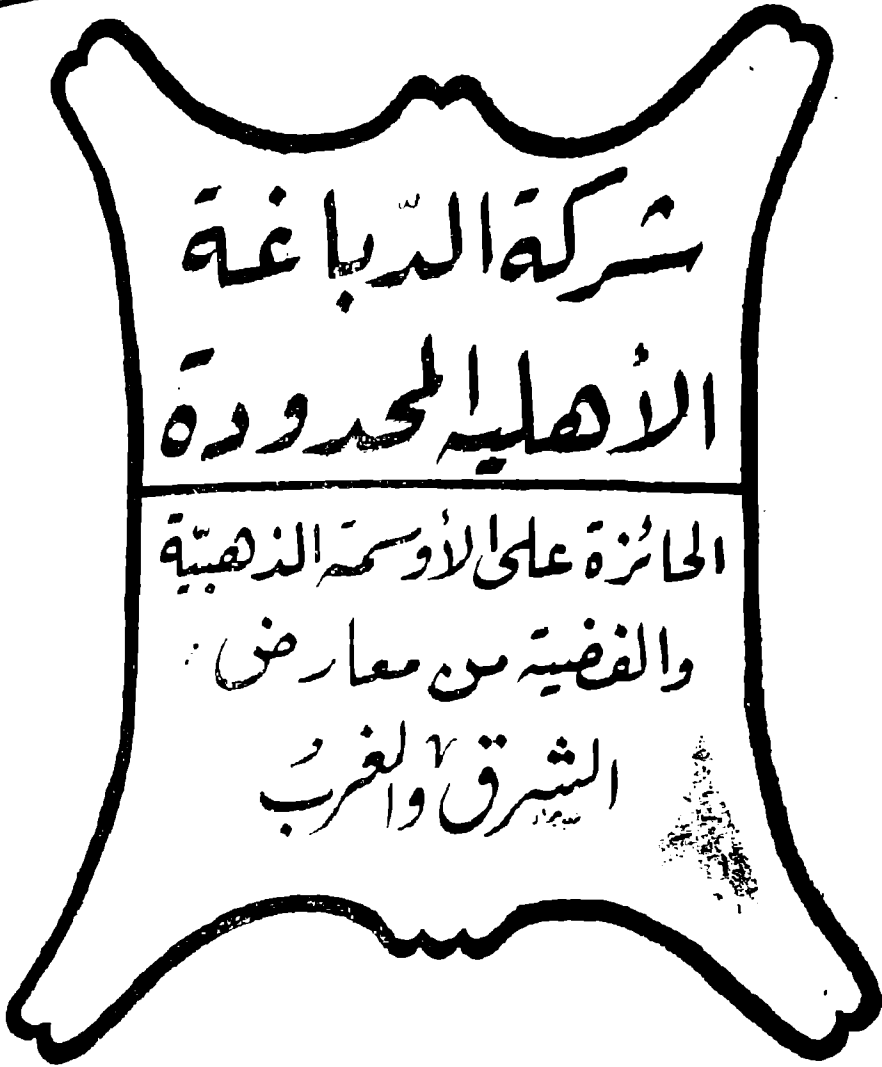 شركة الدّباغة
الأهلية المحدودة
الحائزة على الأوسمة الذهبيّة
والفضية من معارض
الشرق والغرب